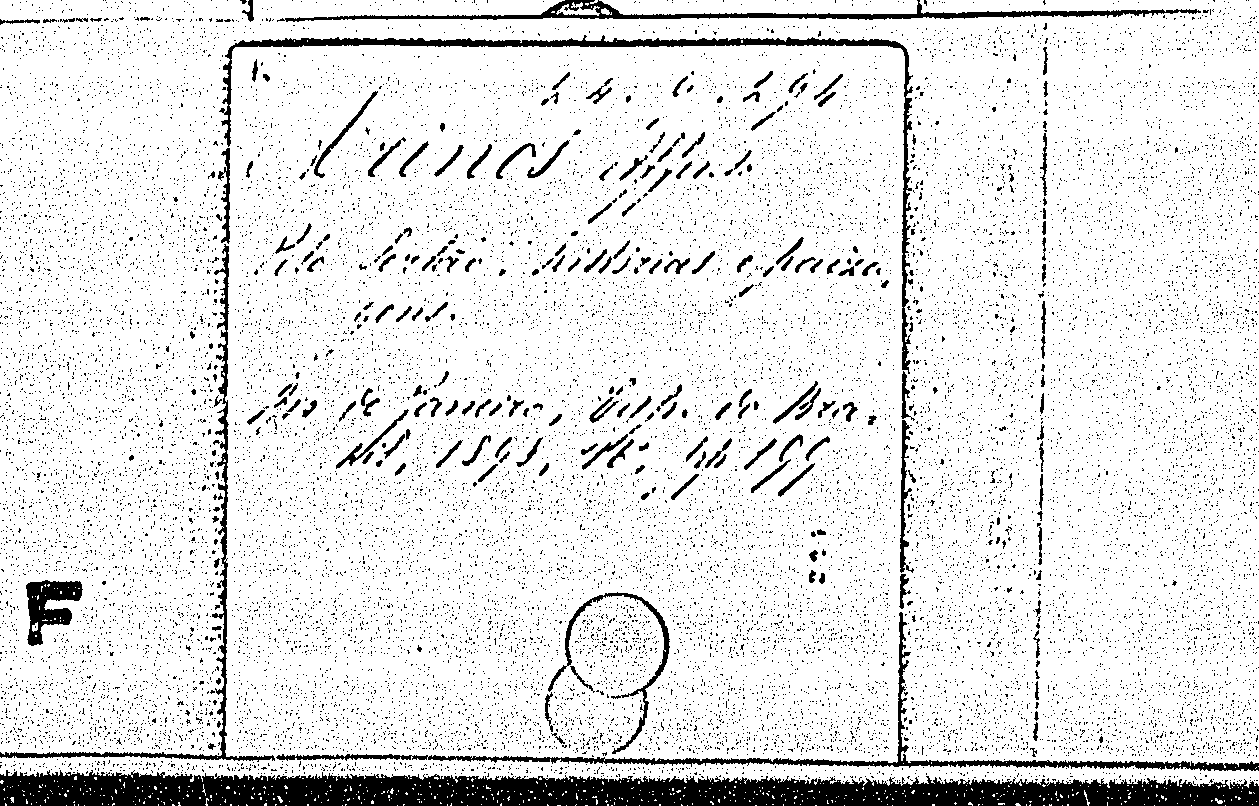 24. G. 294
Arinos Affonso
Pelo Sertão: historias e paiza-
gens.
Rio de Janeiro, Typ. do Bra-
zil, 1898, pp 199
F